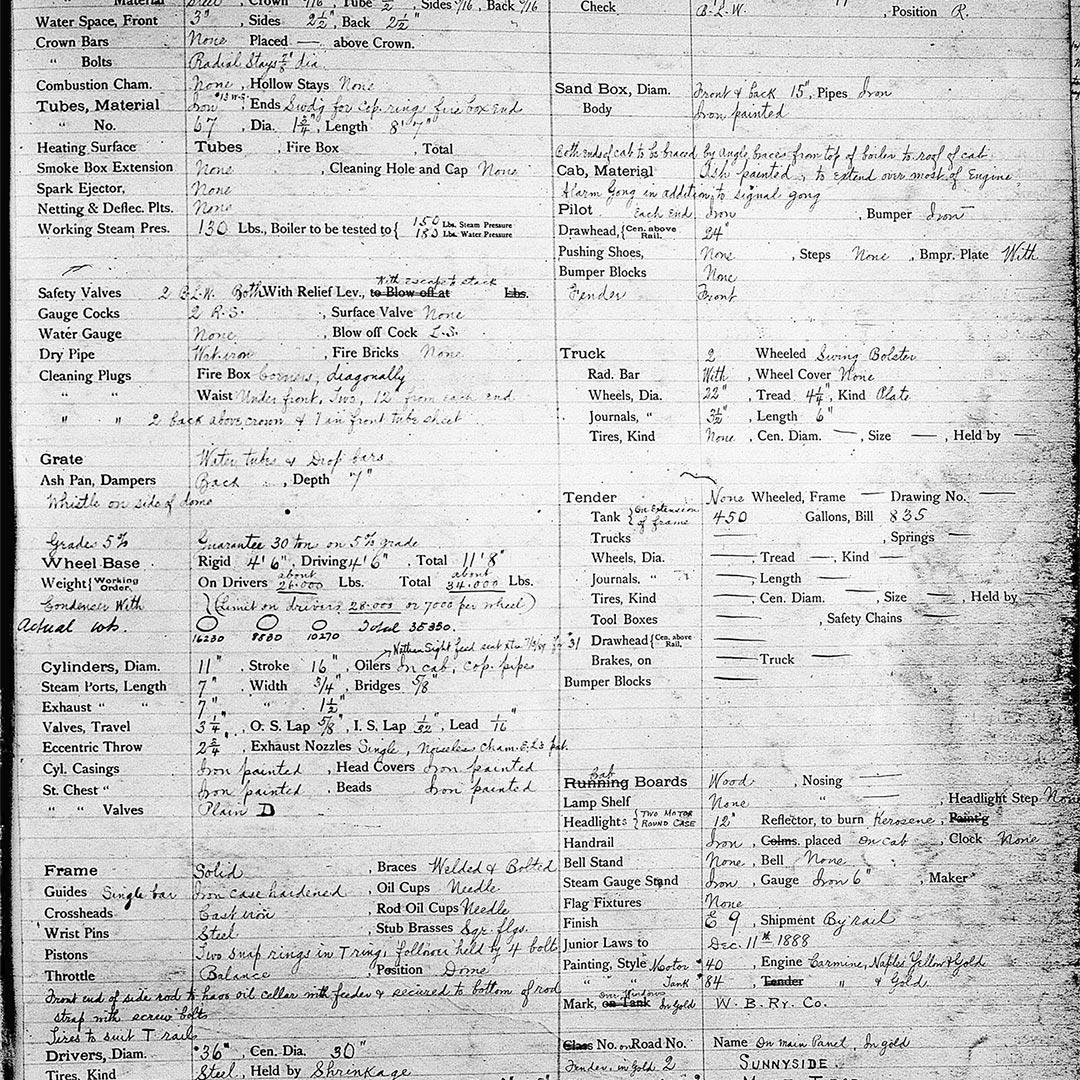 Material Steel, Crown 7/16, Tube 1/2, Sides 7/16, Back 7/16
Water Space, Front 3", Sides 2 1/2", Back 2 1/2"
Crown Bars None Placed — above Crown.
" Bolts Radial Stays 7/8" dia.
Combustion Cham. None, Hollow Stays None
Tubes, Material Iron #13 W.G. Ends Swdg for cop. rings fire box end
" No. 67, Dia. 1 3/4", Length 8' 7"
Heating Surface Tubes , Fire Box , Total
Smoke Box Extension None , Cleaning Hole and Cap None
Spark Ejector, None
Netting & Deflec. Plts. None
Working Steam Pres. 130 Lbs., Boiler to be tested to { 150 Lbs. Steam Pressure
180 Lbs. Water Pressure
With escape to stack
Safety Valves 2 B.L.W. Both With Relief Lev., to Blow off at Lbs.
Gauge Cocks 2 R.S. , Surface Valve None
Water Gauge None , Blow off Cock L.S.
Dry Pipe Wrt. iron , Fire Bricks None
Cleaning Plugs Fire Box Corners, diagonally
" " Waist Under front, Two, 12" from each end
" " 2 back above crown & 1 in front tube sheet
Grate Water tubes & Drop bars
Ash Pan, Dampers Back , Depth 7"
Whistle on side of dome
Grades 5% Guarantee 30 tons on 5% grade
Wheel Base Rigid 4' 6", Driving 4' 6", Total 11' 8"
Weight { Working Order, On Drivers about 26.000 Lbs. Total about 34.000 Lbs.
Condenser With (Limit on drivers 28.000 or 7000 per wheel)
Actual wts. 16230 8830 10270 Total 35330.
Nathan Sight feed
Cylinders, Diam. 11", Stroke 16", Oilers In cab, cop. pipe
Steam Ports, Length 7", Width 3/4", Bridges 5/8"
Exhaust " " 7" " 1 1/2"
Valves, Travel 3 1/4", O. S. Lap 5/8", I. S. Lap 1/32", Lead 1/16"
Eccentric Throw 2 3/4", Exhaust Nozzles Single, noiseless cham. pat.
Cyl. Casings Iron painted , Head Covers Iron painted
St. Chest " Iron painted , Beads Iron painted
" " Valves Plain D
Frame Solid , Braces Welded & Bolted
Guides Single bar Iron case hardened , Oil Cups Needle
Crossheads Cast iron , Rod Oil Cups Needle
Wrist Pins Steel , Stub Brasses Sqr. flgs.
Pistons Two snap rings in T ring, follower held by 4 bolts
Throttle Balance , Position Dome
Front end of side rod to have oil cellar with feeder & secured to bottom of rod
strap with screw bolts
Tires to suit T rail
Drivers, Diam. 36", Cen. Dia. 30"
Tires, Kind Steel, Held by Shrinkage
Check B.L.W. , Position R.
Sand Box, Diam. Front & back 15", Pipes Iron
Body Iron painted
Both ends of cab to be braced by angle braces from top of boiler to roof of cab
Cab, Material Ash painted, to extend over most of Engine
Alarm Gong in addition to signal gong
Pilot Each End Iron , Bumper Iron
Drawhead, { Cen. above Rail. 24"
Pushing Shoes, None , Steps None , Bmpr. Plate With
Bumper Blocks None
Fender Front
Truck 2 Wheeled Swing Bolster
Rad. Bar With , Wheel Cover None
Wheels, Dia. 22", Tread 4 1/4", Kind Plate
Journals, " 3 1/2", Length 6"
Tires, Kind None, Cen. Diam. — , Size — , Held by —
Tender None Wheeled, Frame — Drawing No. —
Tank { on Extension of frame 450 Gallons, Bill 835
Trucks — , Springs —
Wheels, Dia. — , Tread — , Kind —
Journals, " — , Length —
Tires, Kind — , Cen. Diam. — , Size — , Held by —
Tool Boxes — , Safety Chains —
#31 Drawhead { Cen. above Rail. —
Brakes, on — Truck —
Bumper Blocks —
Cab
Running Boards Wood , Nosing —
Lamp Shelf None " — , Headlight Step None
Headlights { TWO MOTOR ROUND CASE 12" Reflector, to burn Kerosene, Paint'g
Handrail Iron , Colms. placed on cab , Clock None
Bell Stand None , Bell None
Steam Gauge Stand Iron , Gauge Iron 6" , Maker
Flag Fixtures None
Finish E 9 , Shipment By rail
Junior Laws to Dec. 11th 1888
Painting, Style Motor #40 , Engine Carmine, Naples Yellow & Gold
" " Tank #84 , Tender " & Gold
Mark, on Tank over Windows In Gold W. B. RY. CO.
Class No. on Road No. Name On main Panel, In gold
Fender, in Gold 2 SUNNYSIDE.